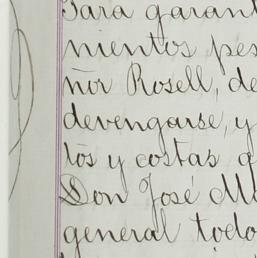 Para garant
mientos pes
ñor Rosell, de
devengarse, y
tos y costas q
Don José Ma
general todo